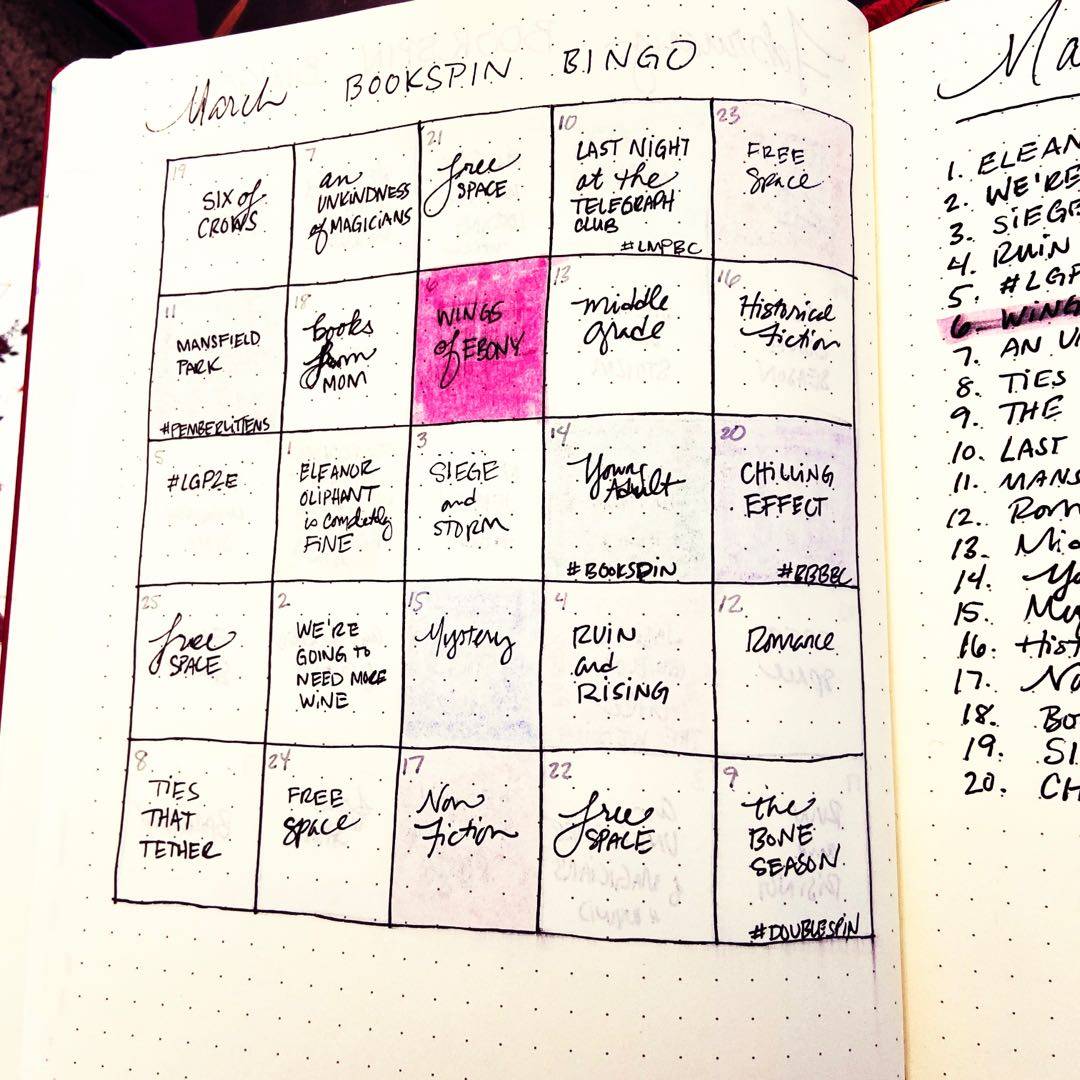 March BOOKSPIN BINGO
19
SIX of
CROWS
7
an
UNKINDNESS
of MAGICIANS
21
free
SPACE
10
LAST NIGHT
at the
TELEGRAPH
CLUB
#LMPBC
23
FREE
Space
11
MANSFIELD
PARK
#PEMBERLITTENS
18
books
from
MOM
6
WINGS
of EBONY
13
middle
grade
16
Historical
Fiction
5
#LGP2E
1
ELEANOR
OLIPHANT
is completly
FINE
3
SIEGE
and
STORM
14
Young
Adult
#BOOKSPIN
20
CHILLING
EFFECT
#BBBBC
25
free
SPACE
2
WE'RE
GOING to
NEED MORE
WINE
15
Mystery
4
RUIN
and
RISING
12
Romance
8
TIES
THAT
TETHER
24
FREE
Space
17
Non
Fiction
22
free
SPACE
9
the
BONE
SEASON
#DOUBLESPIN
Ma
1. ELEAN
2. WE'RE
3. SIEGE
4. RUIN
5. #LGP
6. WING
7. AN U
8. TIES
9. THE
10. LAST
11. MANS
12. Rom
13. Mid
14. Yo
15. My
16. Hist
17. No
18. Bo
19. SI
20. CH